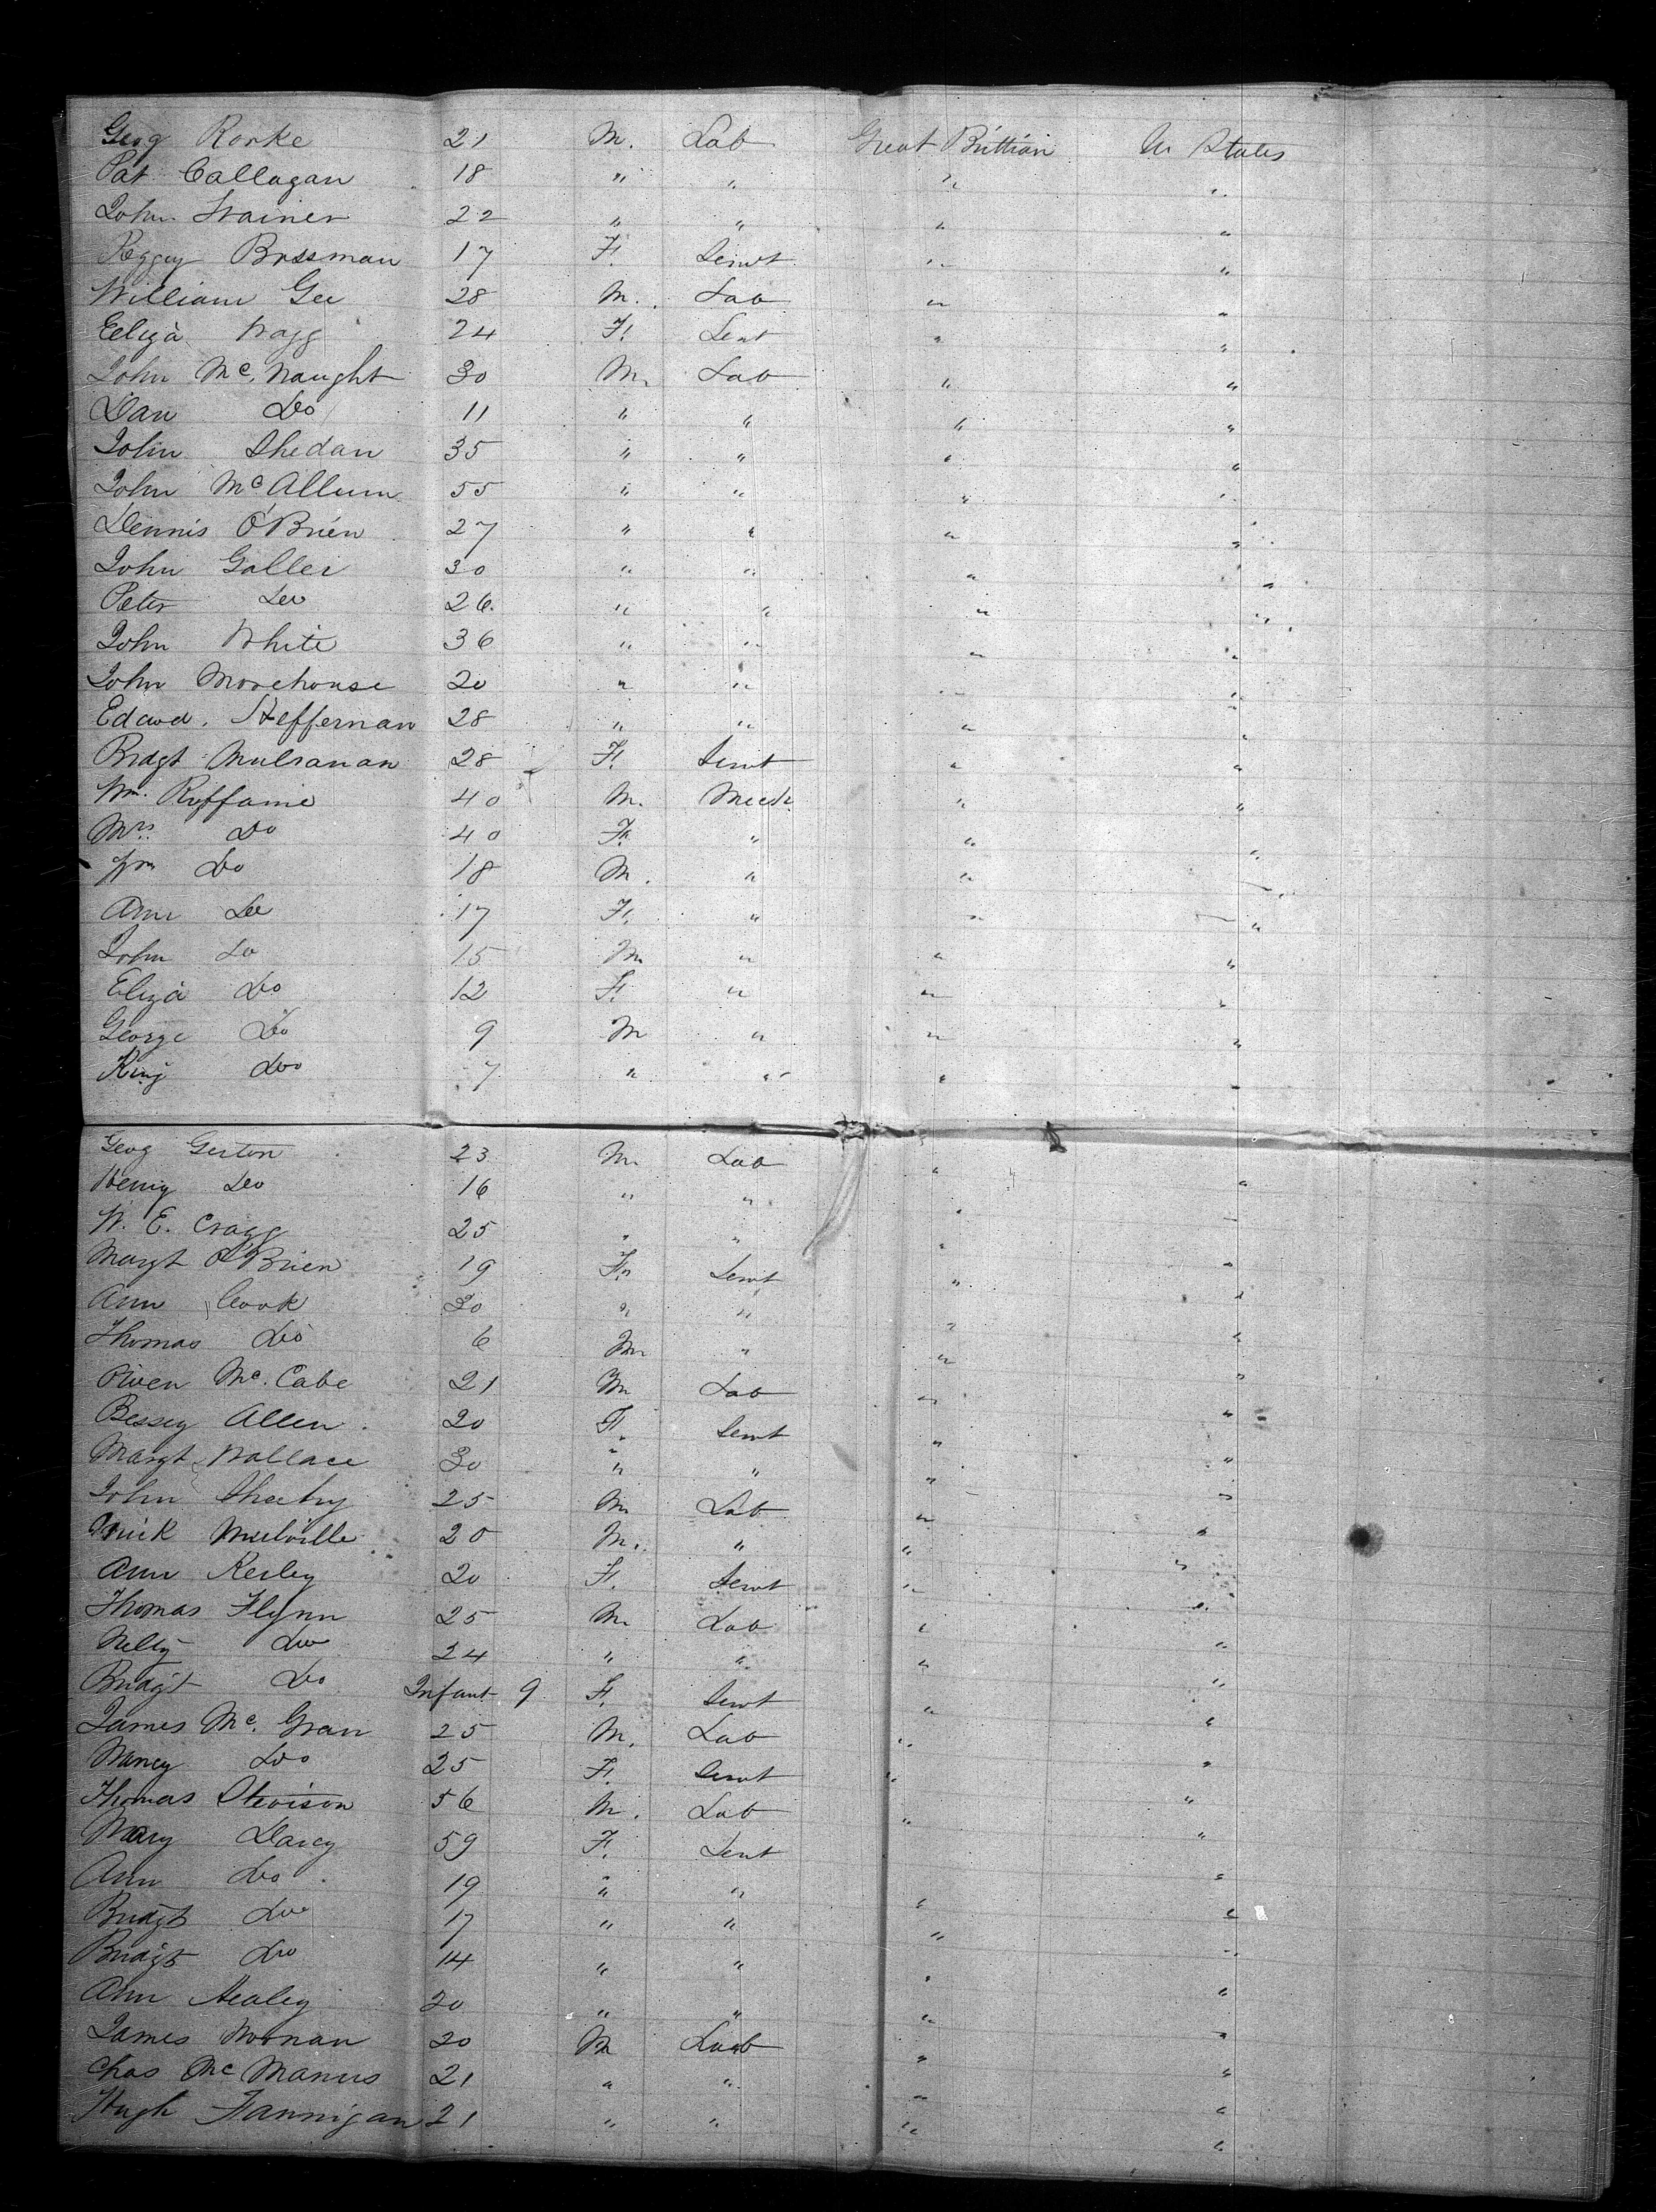 Geog Rorke 21 M. Lab Great Brittian U States
Pat Callagan 18 " " " "
John Trainer 22 " " " "
Peggy Brssman 17 F. Servt " "
William Gee 28 M. Lab " "
Eeliza Wagg 24 F. Sevt " "
John Mc. Naught 30 M. Lab " "
Dan Do 11 " " " "
John Shedan 35 " " " "
John McAllum 55 " " " "
Dennis O'Brien 27 " " " "
John Galler 30 " " " "
Peter Do 26. " " " "
John White 36 " " " "
John Morehouse 20 " " " "
Edawd. Heffernan 28 " " " "
Bridgt Mulranan 28 F. Servt " "
Wm. Ruffanie 40 M. Mech. " "
Mrs. Do 40 F. " " "
Wm Do 18 M. " " "
Ann Do 17 F. " " "
John Do 15 M " " "
Eliza Do 12 F. " " "
George Do 9 M " " "
King Do 7 " " " "
Geog Gerton 23 M. Lab " "
Henry Do 16 " " " "
W. E. Cragg 25 " " " "
Margt O'Brien 19 F. Servt " "
Ann Cook 30 " " " "
Thomas Do 6 M " " "
Owen Mc. Cabe 21 M Lab " "
Bessey Allen. 20 F. Servt " "
Margt Wallace 30 " " " "
John Sheehy 25 M Lab " "
Mick Mulville 20 M. " " "
Ann Kerley 20 F. Servt " "
Thomas Flynn 25 M. Lab " "
Nelly Do 24 " " " "
Bridgt Do Infant 9 F. Servt " "
James Mc. Gran 25 M. Lab " "
Nancy Do 25 F. Servt " "
Thomas Stevison 56 M. Lab " "
Mary Darcy 59 F. Sevt " "
Ann Do. 19 " " " "
Bridgt Do 17 " " " "
Bridgt Do 14 " " " "
Ann Healey 20 " " " "
James Noonan 20 M Laab " "
Chas McManus 21 " " " "
Hugh Fannigan 21 " " " "